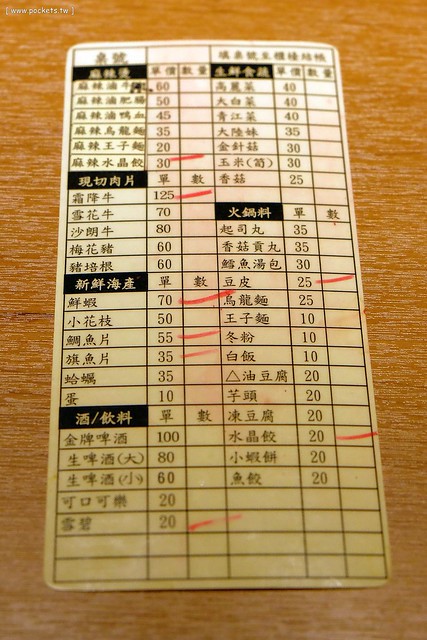 [ www.pockets.tw ]
桌號 填桌號至櫃檯結帳
麻辣燙 單價 數量 生鮮食蔬 單價 數量
麻辣滷牛 60 高麗菜 40
麻辣滷肥腸 50 大白菜 40
麻辣滷鴨血 45 青江菜 40
麻辣烏龍麵 35 大陸妹 35
麻辣王子麵 20 金針菇 30
麻辣水晶餃 30 玉米(筍) 30
現切肉片 單 數 香菇 25
霜降牛 125
雪花牛 70 火鍋料 單 數
沙朗牛 80 起司丸 35
梅花豬 60 香菇貢丸 35
豬培根 60 鱈魚湯包 30
新鮮海產 單 數 豆皮 25
鮮蝦 70 烏龍麵 25
小花枝 50 王子麵 10
鯛魚片 55 冬粉 10
旗魚片 35 白飯 10
蛤蠣 35 △油豆腐 20
蛋 10 芋頭 20
酒/飲料 單 數 凍豆腐 20
金牌啤酒 100 水晶餃 20
生啤酒(大) 80 小蝦餅 20
生啤酒(小) 60 魚餃 20
可口可樂 20
雪碧 20